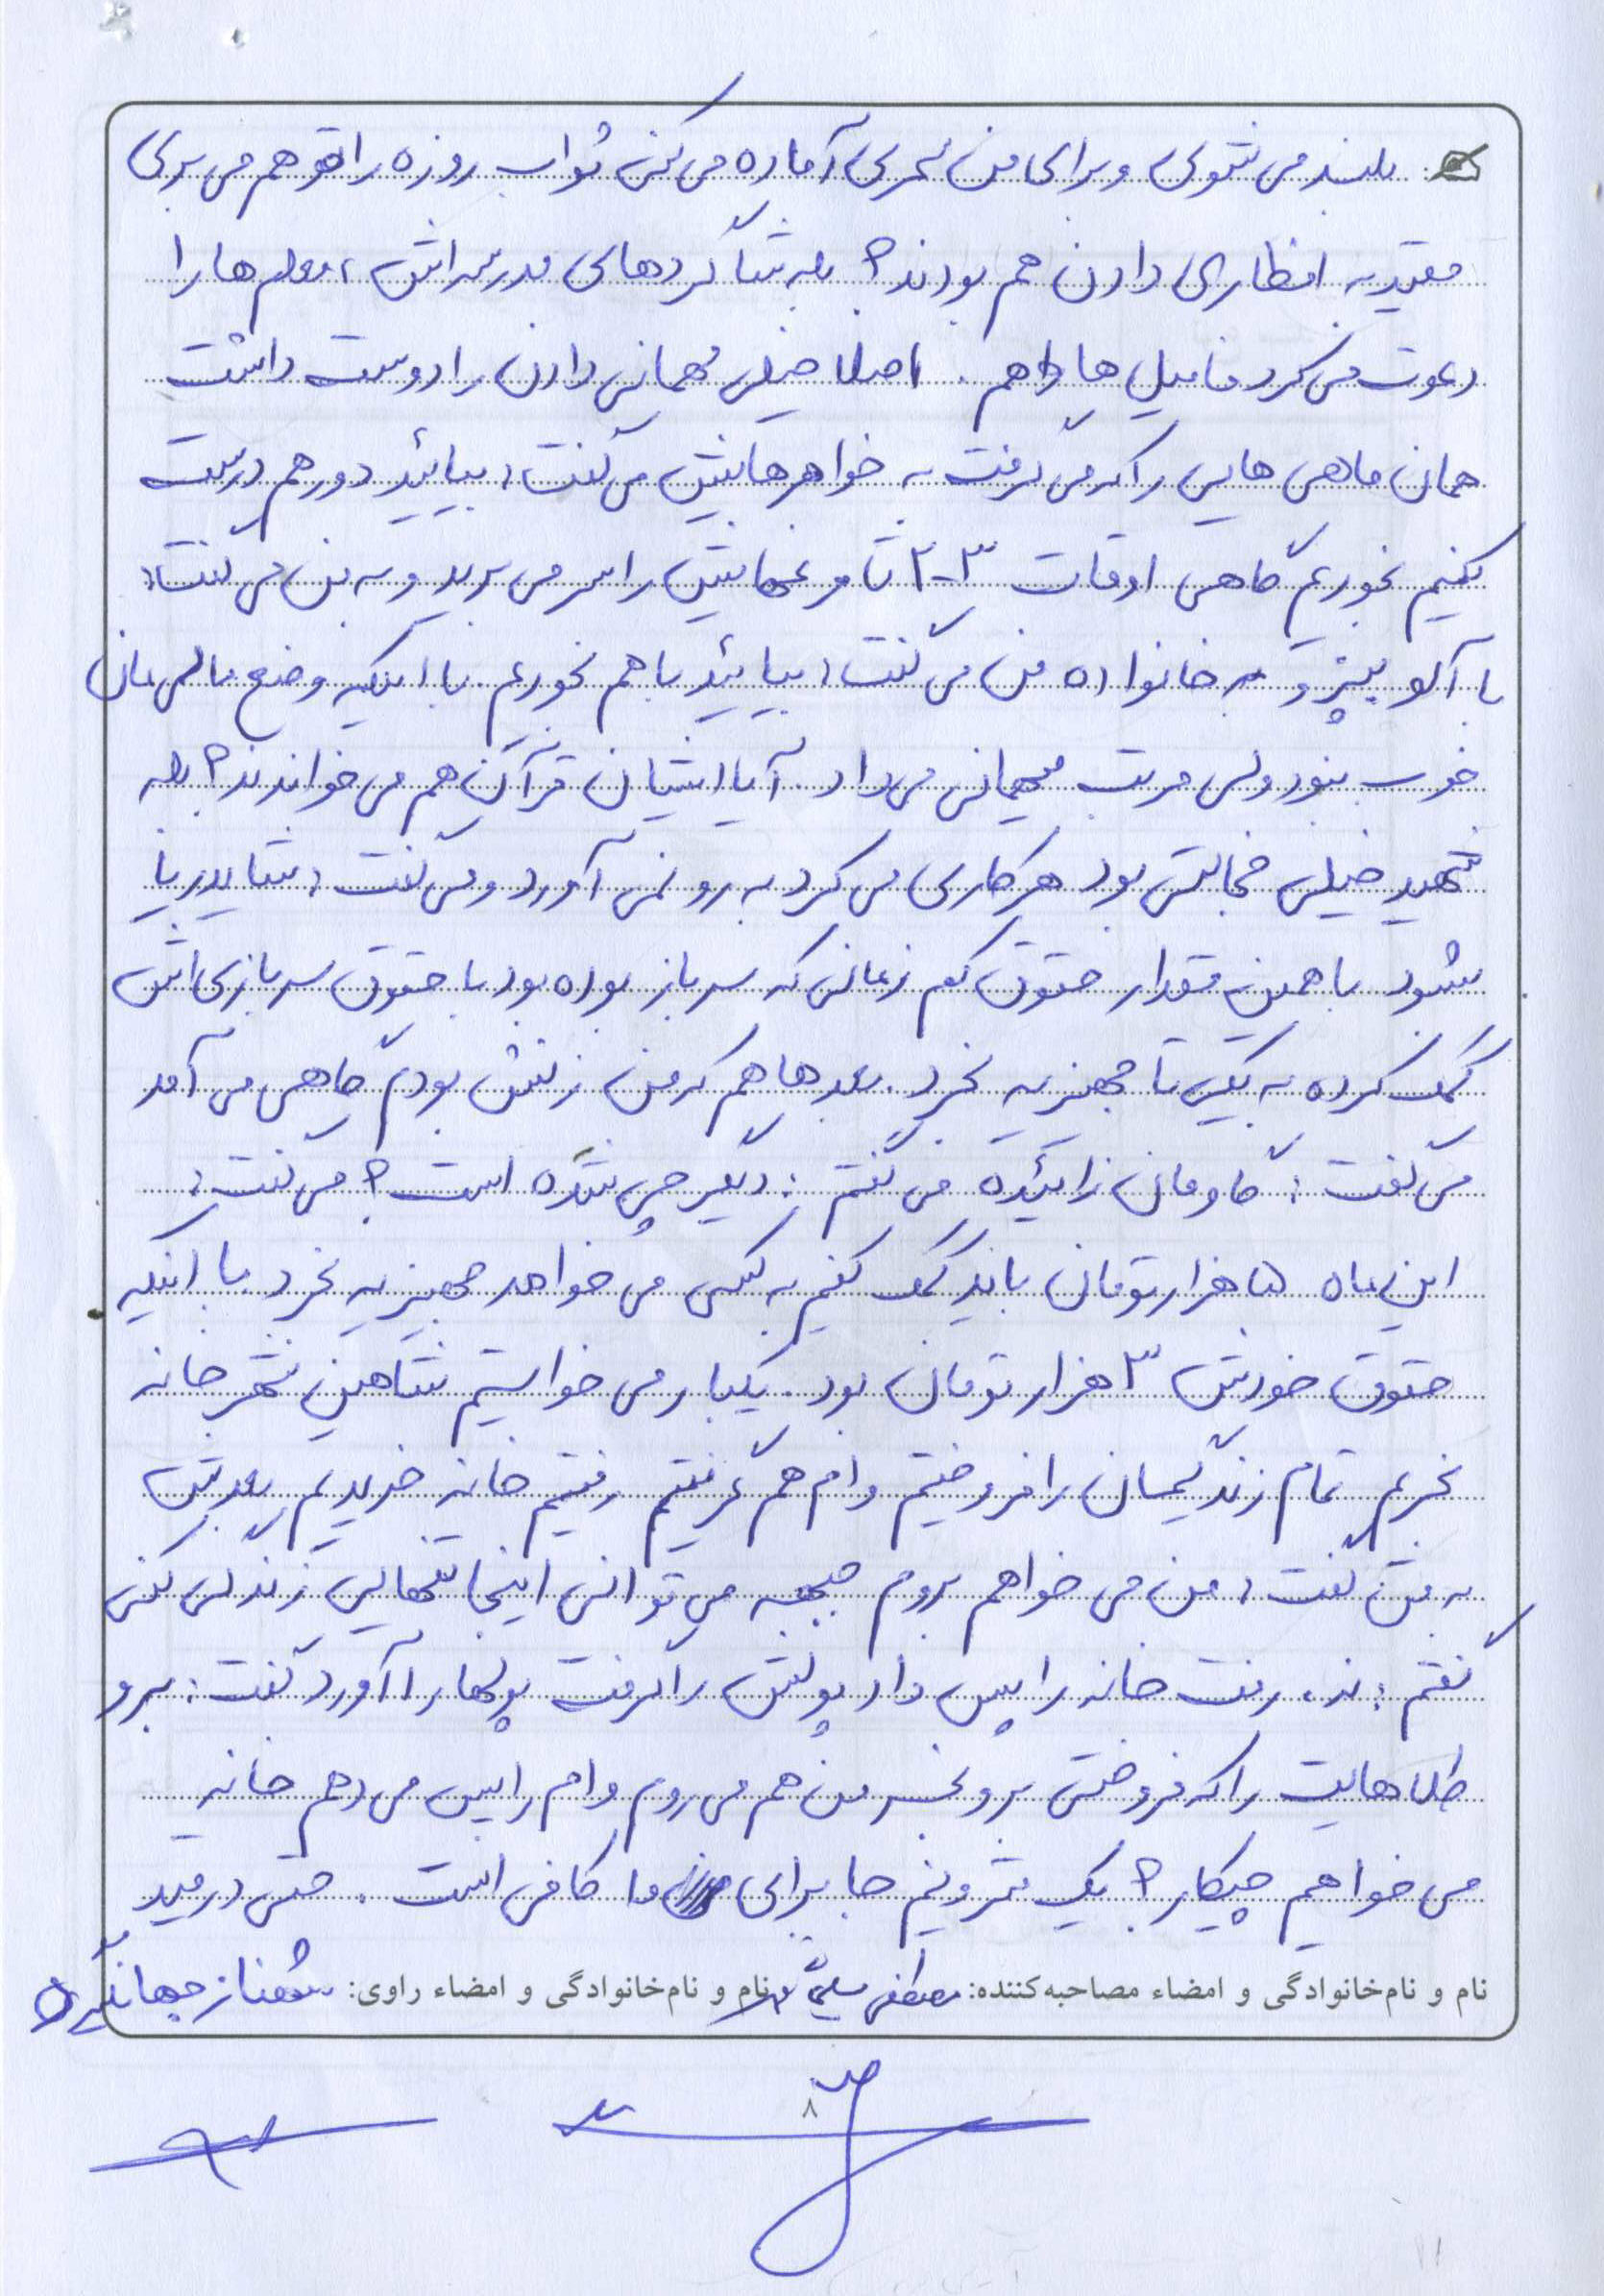 بلند می شوی و برای من سحری آماده می کنی ثواب روزه را تو هم می بری
مقید به افطاری دادن هم بودند؟ بله شاگردهای مدرسه اش، معلم ها را
دعوت می کرد فامیل ها را هم. اصلا خیلی مهمانی دادن را دوست داشت
همان ماهی هایی را که می گرفت به خواهرهایش می گفت: بیائید دور هم درست
کنیم بخوریم گاهی اوقات ۳-۲ تا مرغهایش را سر می برید و به من می گفت:
با آلو بپز و به خانواده من می گفت: بیائید با هم بخوریم. با اینکه وضع مالی مان
خوب نبود ولی مرتب میهمانی می داد. آیا ایشان قرآن هم می خواندند؟ بله
شهید خیلی خجالتی بود هر کاری می کرد به رو نمی آورد و می گفت: شاید ریا
بشود. با همین مقدار حقوق کم زمانی که سرباز بوده بود با حقوق سربازی اش
کمک کرده به یکی تا جهزیه بخرد. بعدها هم که من زنش بودم گاهی می آمد
می گفت: گاومان زائیده می گفتم: دیگر چی شده است؟ می گفت:
این ماه ۵ هزار تومان باید کمک کنیم به کسی می خواهد جهیزیه بخرد. با اینکه
حقوق خودش ۳ هزار تومان بود. یکبار می خواستیم شاهین شهر خانه
بخریم تمام زندگیمان را فروختیم وام هم گرفتیم رفتیم خانه خریدیم بعدش
به من گفت: من می خواهم بروم جبهه می توانی اینجا تنهایی زندگی کنی
گفتم: نه. رفت خانه را پس داد پولش را گرفت پولها را آورد گفت: برو
طلاهایت را که فروختی برو بخر من هم می روم وام را پس می دهم خانه
می خواهیم چیکار؟ یک متر و نیم جا برای ما کافی است. حتی در قید
نام و نام خانوادگی و امضاء مصاحبه کننده: مصطفی نام و نام خانوادگی و امضاء راوی: شهناز جهانگیری
۸